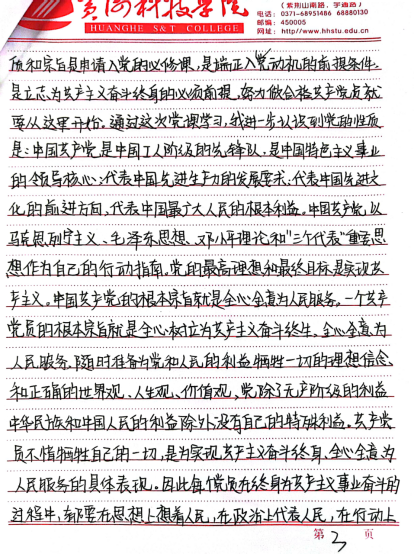 黄河科技学院
HUANGHE S&T COLLEGE
(紫荆山南路，宇通路)
电话：0371-68951486 68880130
邮编：450005
网址：http://www.hhstu.edu.cn
质和宗旨是申请入党的必修课，是端正入党动机的前提条件，
是立志为共产主义奋斗终身的必须前提。努力做合格共产党员就
要从这里开始。通过这次党课学习，我进一步认识到党的性质
是：中国共产党是中国工人阶级的先锋队，是中国特色主义事业
的领导核心；代表中国先进生产力的发展要求，代表中国先进文
化的前进方向，代表中国最广大人民的根本利益。中国共产党以
马克思列宁主义、毛泽东思想、邓小平理论和“三个代表”重要思
想作为自己的行动指南。党的最高理想和最终目标是实现共
产主义。中国共产党的根本宗旨就是全心全意为人民服务。一个共产
党员的根本宗旨就是全心树立为共产主义奋斗终生、全心全意为
人民服务，随时准备为党和人民的利益牺牲一切的理想信念
和正确的世界观、人生观、价值观，党除了无产阶级的利益
中华民族和中国人民的利益除外没有自己的特殊利益。共产党
员不惜牺牲自己的一切，是为实现共产主义奋斗终身、全心全意为
人民服务的具体表现。因此每个党员在终身为共产主义事业奋斗的
过程中，都要在思想上想着人民，在政治上代表人民，在行动上
第3页